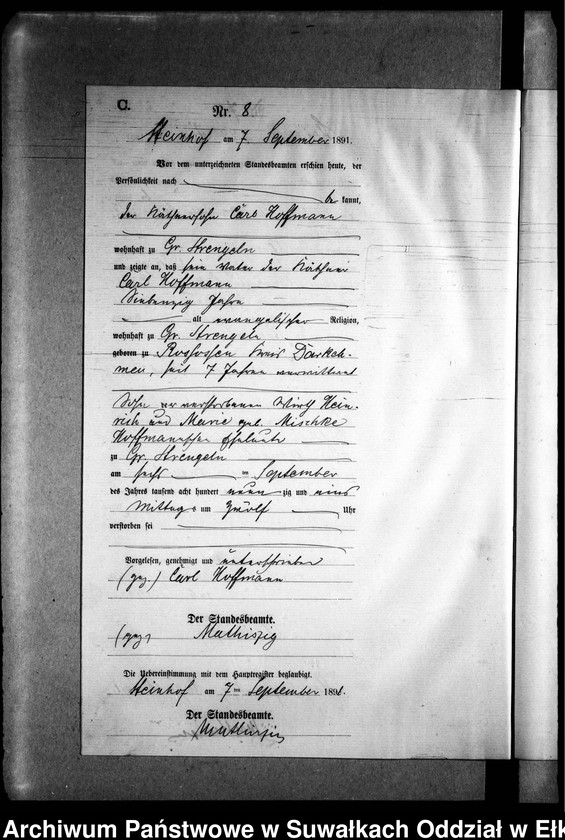 C.
Nr. 8
Steinhof am 7. September 1891.
Vor dem unterzeichneten Standesbeamten erschien heute, der
Persönlichkeit nach
be kannt,
der Käthnersohn Carl Hoffmann
wohnhaft zu Gr. Strengeln
und zeigte an, daß sein Vater der Käthner
Carl Hoffmann
Siebenzig Jahre
alt evangelischer Religion,
wohnhaft zu Gr. Strengeln
geboren zu Rossossen Kreis Darkeh-
men, seit 7 Jahren verwittwet
Sohn der verstorbenen Wirth Hein-
rich und Marie geb. Mischke
Hoffmannschen Eheleute
zu Gr. Strengeln
am sechs ten September
des Jahres tausend acht hundert neun zig und eins
Mittags um zwölf Uhr
verstorben sei
Vorgelesen, genehmigt und unterschrieben
(gez.) Carl Hoffmann
Der Standesbeamte.
(gez.) Mathiszig
Die Uebereinstimmung mit dem Hauptregister beglaubigt.
Steinhof am 7 ten September 1891.
Der Standesbeamte.
Mathiszig
Archiwum Państwowe w Suwałkach Oddział w Ełk